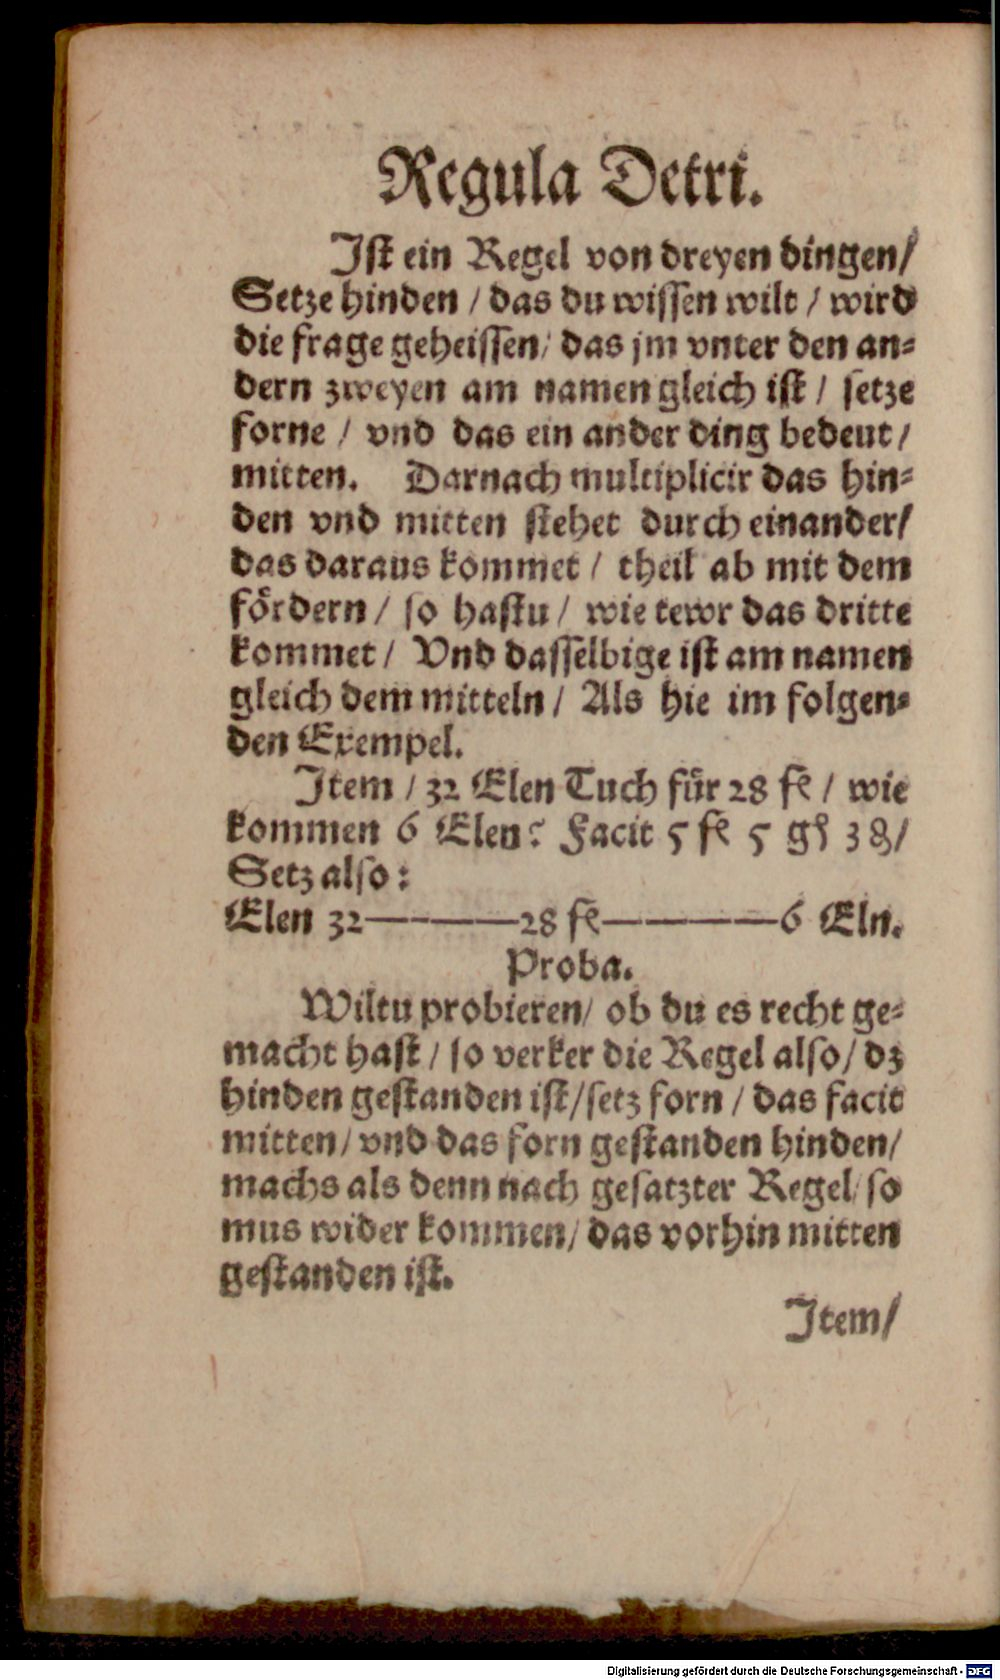 Regula Detri.
Ist ein Regel von dreyen dingen/
Setze hinden / das du wissen wilt / wird
die frage geheissen/ das jm vnter den an⸗
dern zweyen am namen gleich ist / setze
forne / vnd das ein ander ding bedeut /
mitten. Darnach multiplicir das hin⸗
den vnd mitten stehet durch einander/
das daraus kommet / theil ab mit dem
fördern / so hastu / wie tewr das dritte
kommet / Vnd dasselbige ist am namen
gleich dem mitteln / Als hie im folgen⸗
den Exempel.
Item / 32 Elen Tuch für 28 fl / wie
kommen 6 Elen? Facit 5 fl 5 gſ 3 ₰/
Setz also:
Elen 32————28 fl————6 Eln.
Proba.
Wiltu probieren/ ob du es recht ge⸗
macht hast / so verker die Regel also/ dz
hinden gestanden ist/setz forn / das facit
mitten/ vnd das forn gestanden hinden/
machs als denn nach gesatzter Regel/ so
mus wider kommen/ das vorhin mitten
gestanden ist.
Item/
Digitalisierung gefördert durch die Deutsche Forschungsgemeinschaft - DFG